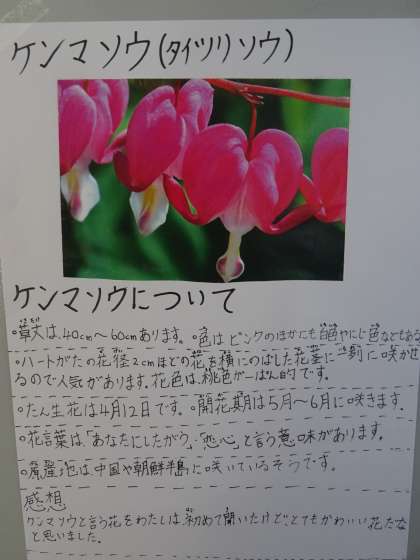 ケンマソウ(タイツリソウ)
ケンマソウについて
・草丈は、40cm〜60cmあります。・色はピンクのほかにも白色やにじ色などもある
・ハートがたの花径2cmほどの花を横にのばした花茎に に咲かせ
るので人気があります。花色は、桃色が一ぱん的です。
・たん生花は4月12日です。・開花期は5月〜6月に咲きます。
・花言葉は、「あなたにしたがう」、「恋心」と言う意味があります。
・原産地は中国や朝鮮半島に咲いているそうです。
感想
ケンマソウと言う花をわたしは、初めて聞いたけどとてもかわいい花だな
と思いました。